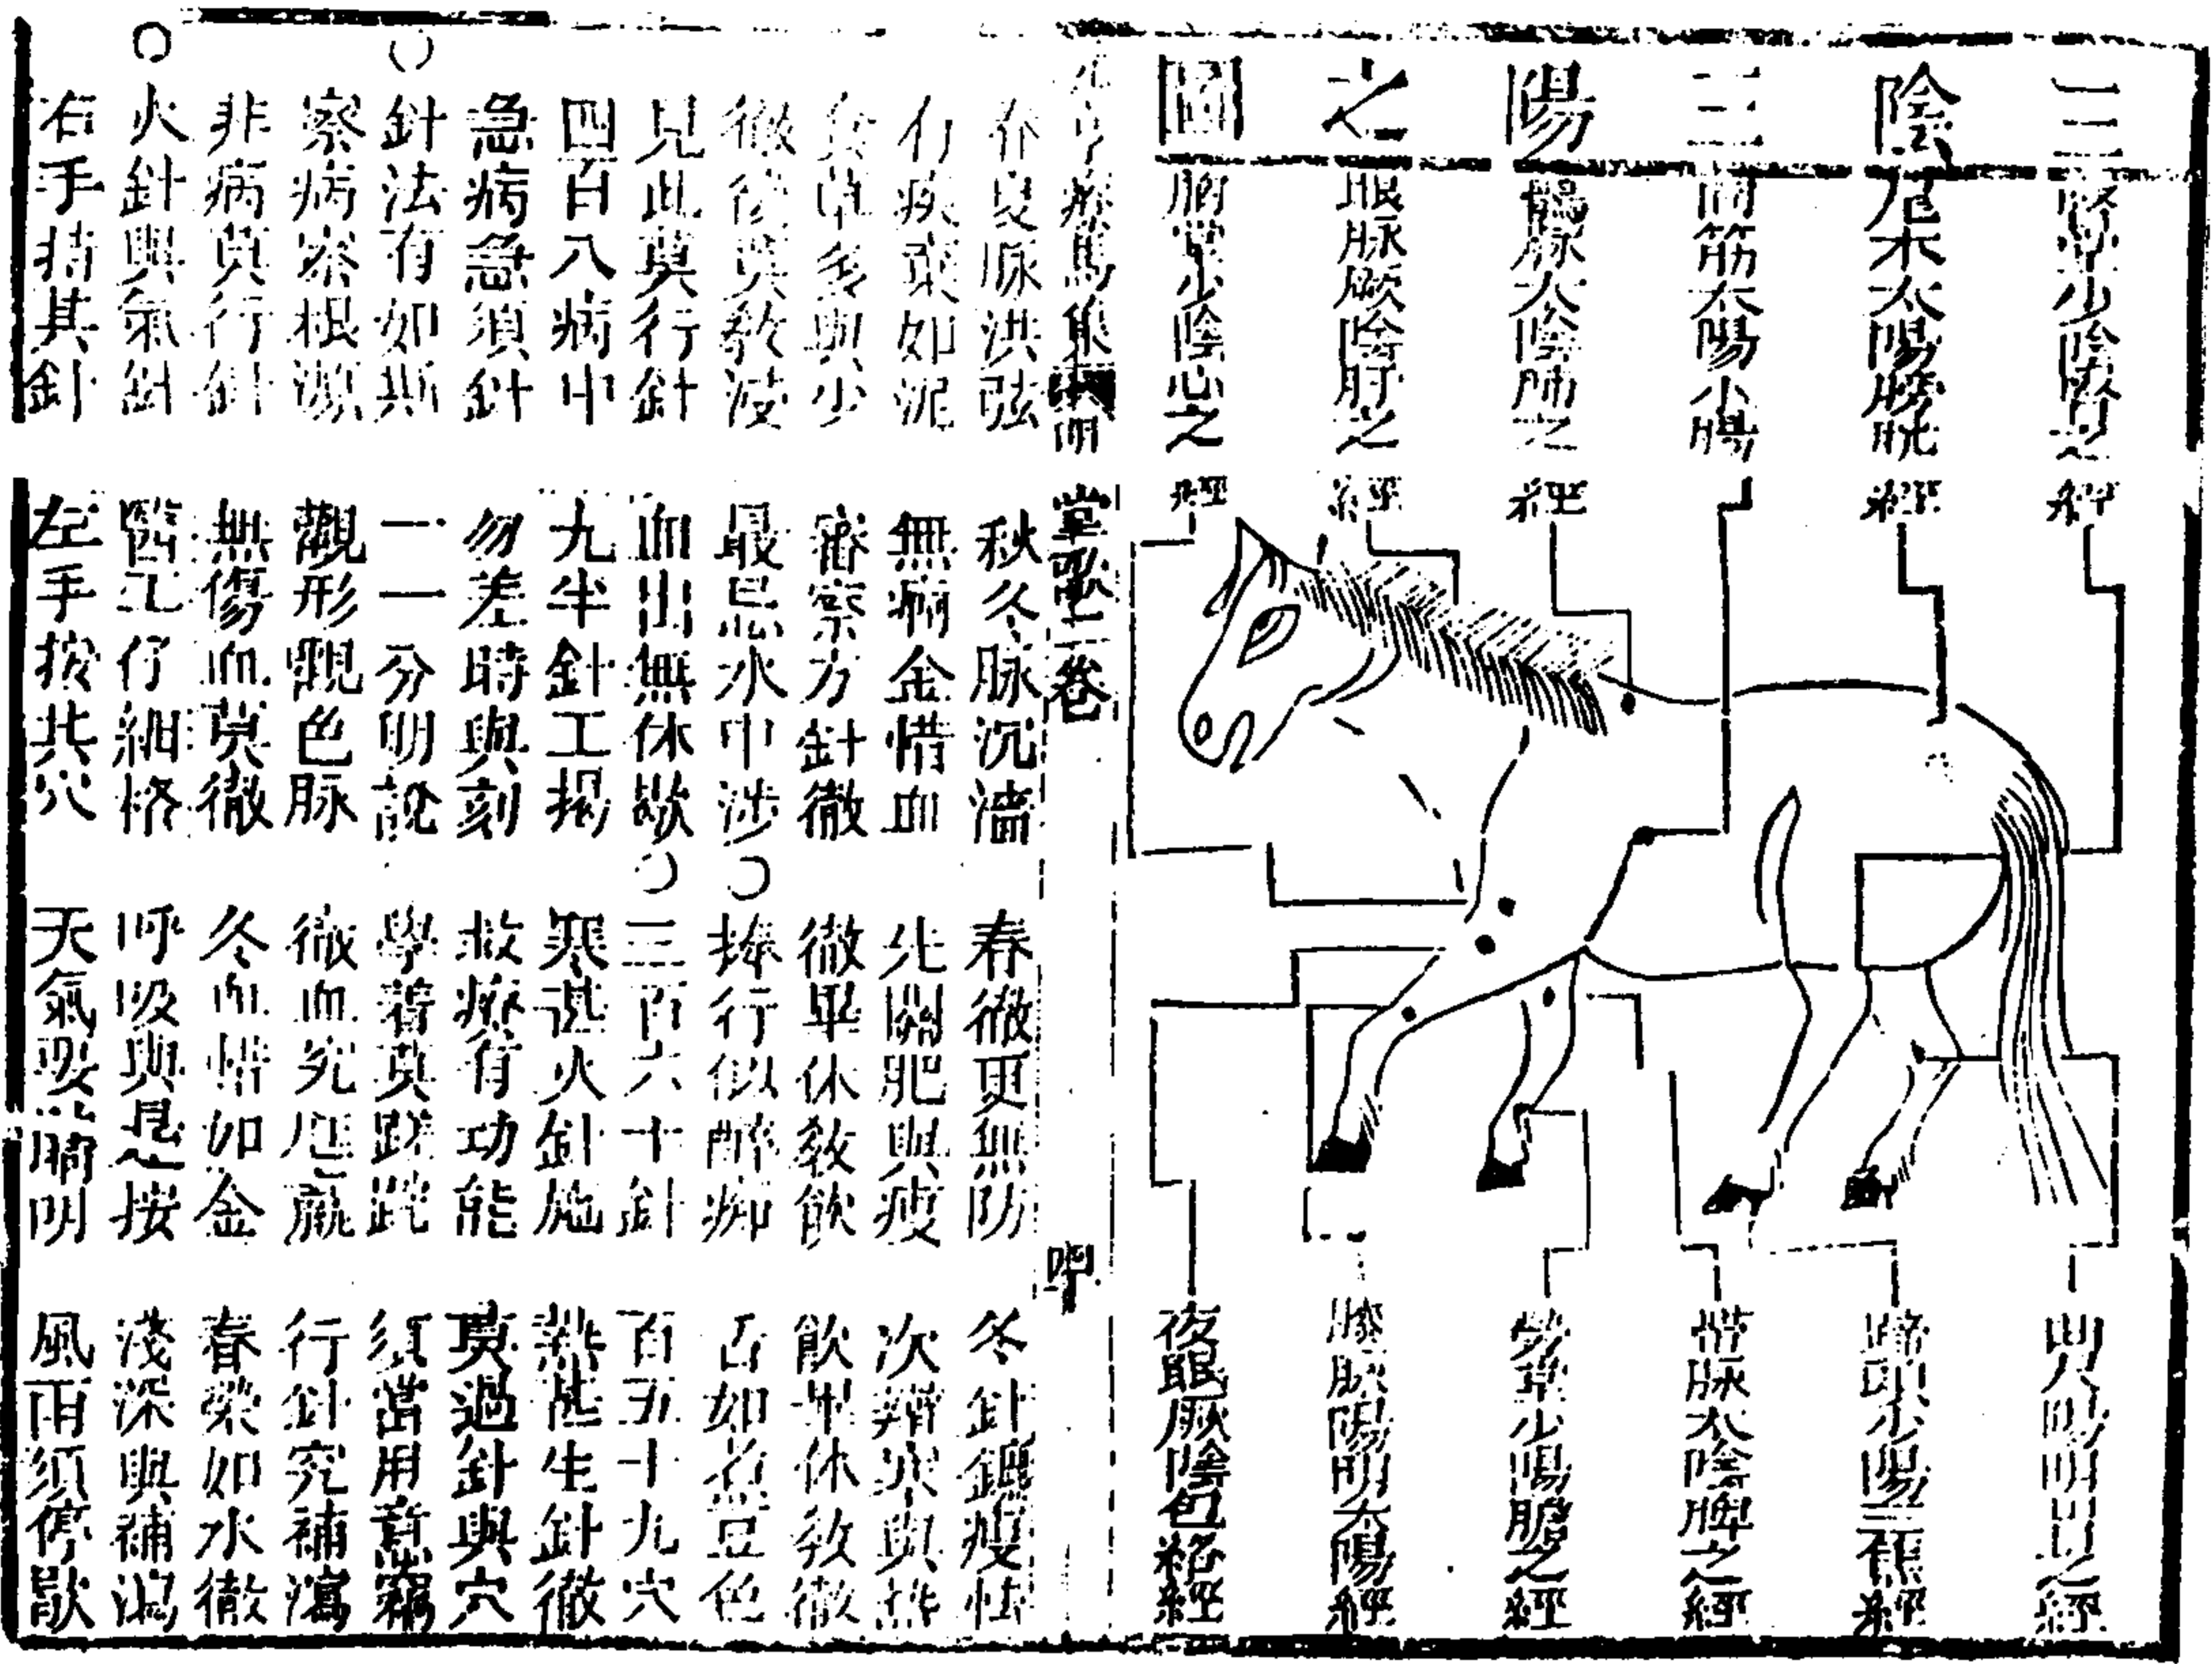 三陰三陽之圖
腎堂少陰腎之經
尾本太陽膀胱經
筋太陽小腸
鶻脉太陰肺之經
眼脉厥陰肝之經
胸堂少陰心之經
陽明胃之經
蹄頭少陽三焦經
帶脉太陰脾之經
勞草少陽膽之經
膝脉陽明大陽經
夜眼厥陰包絡經
療馬集 明堂歌二卷
春夏脉洪弦 秋冬脉沉濇 春徹更無防 冬針鑱瘦怯
疾棄如泥 無病金惜血 先關肥與瘦 次辨寒與熱
食草多與少 審察方針徹 徹畢休教飲 飲畢休教徹
徹後莫教渡 最忌水中涉 捧行似醉痴 舌如煮豆色
見此莫行針 血出無休歇 ○三百六十針 百五十九穴
四百八病中 九半針工揭 寒甚火針施 熱甚生針徹
急病急須針 勿差時與刻 救療有功能 莫過針與穴
○針法有如斯 一一分明說 學者莫蹉跎 須當用意竊
察病察根源 觀形觀色脉 徹血究尫羸 行針究補瀉
非病莫行針 無傷血莫徹 冬血惜如金 春榮如水徹
○火針與氣針 醫工仔細格 呼吸與按 淺深與補瀉
右手持其針 左手按其穴 天氣晴明 風雨須停歇